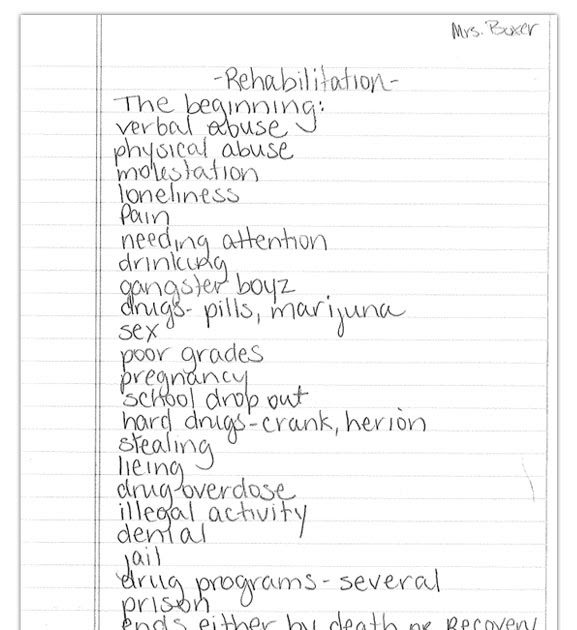 Mrs. Buxer
-Rehabilitation-
The beginning:
verbal abuse
physical abuse
molestation
loneliness
Pain
needing attention
drinking
gangster boyz
drugs- pills, marijuna
sex
poor grades
pregnancy
school drop out
hard drugs-crank, herion
stealing
lieing
drug-overdose
illegal activity
denial
jail
drug programs- several
prison
ends either by death or Recovery